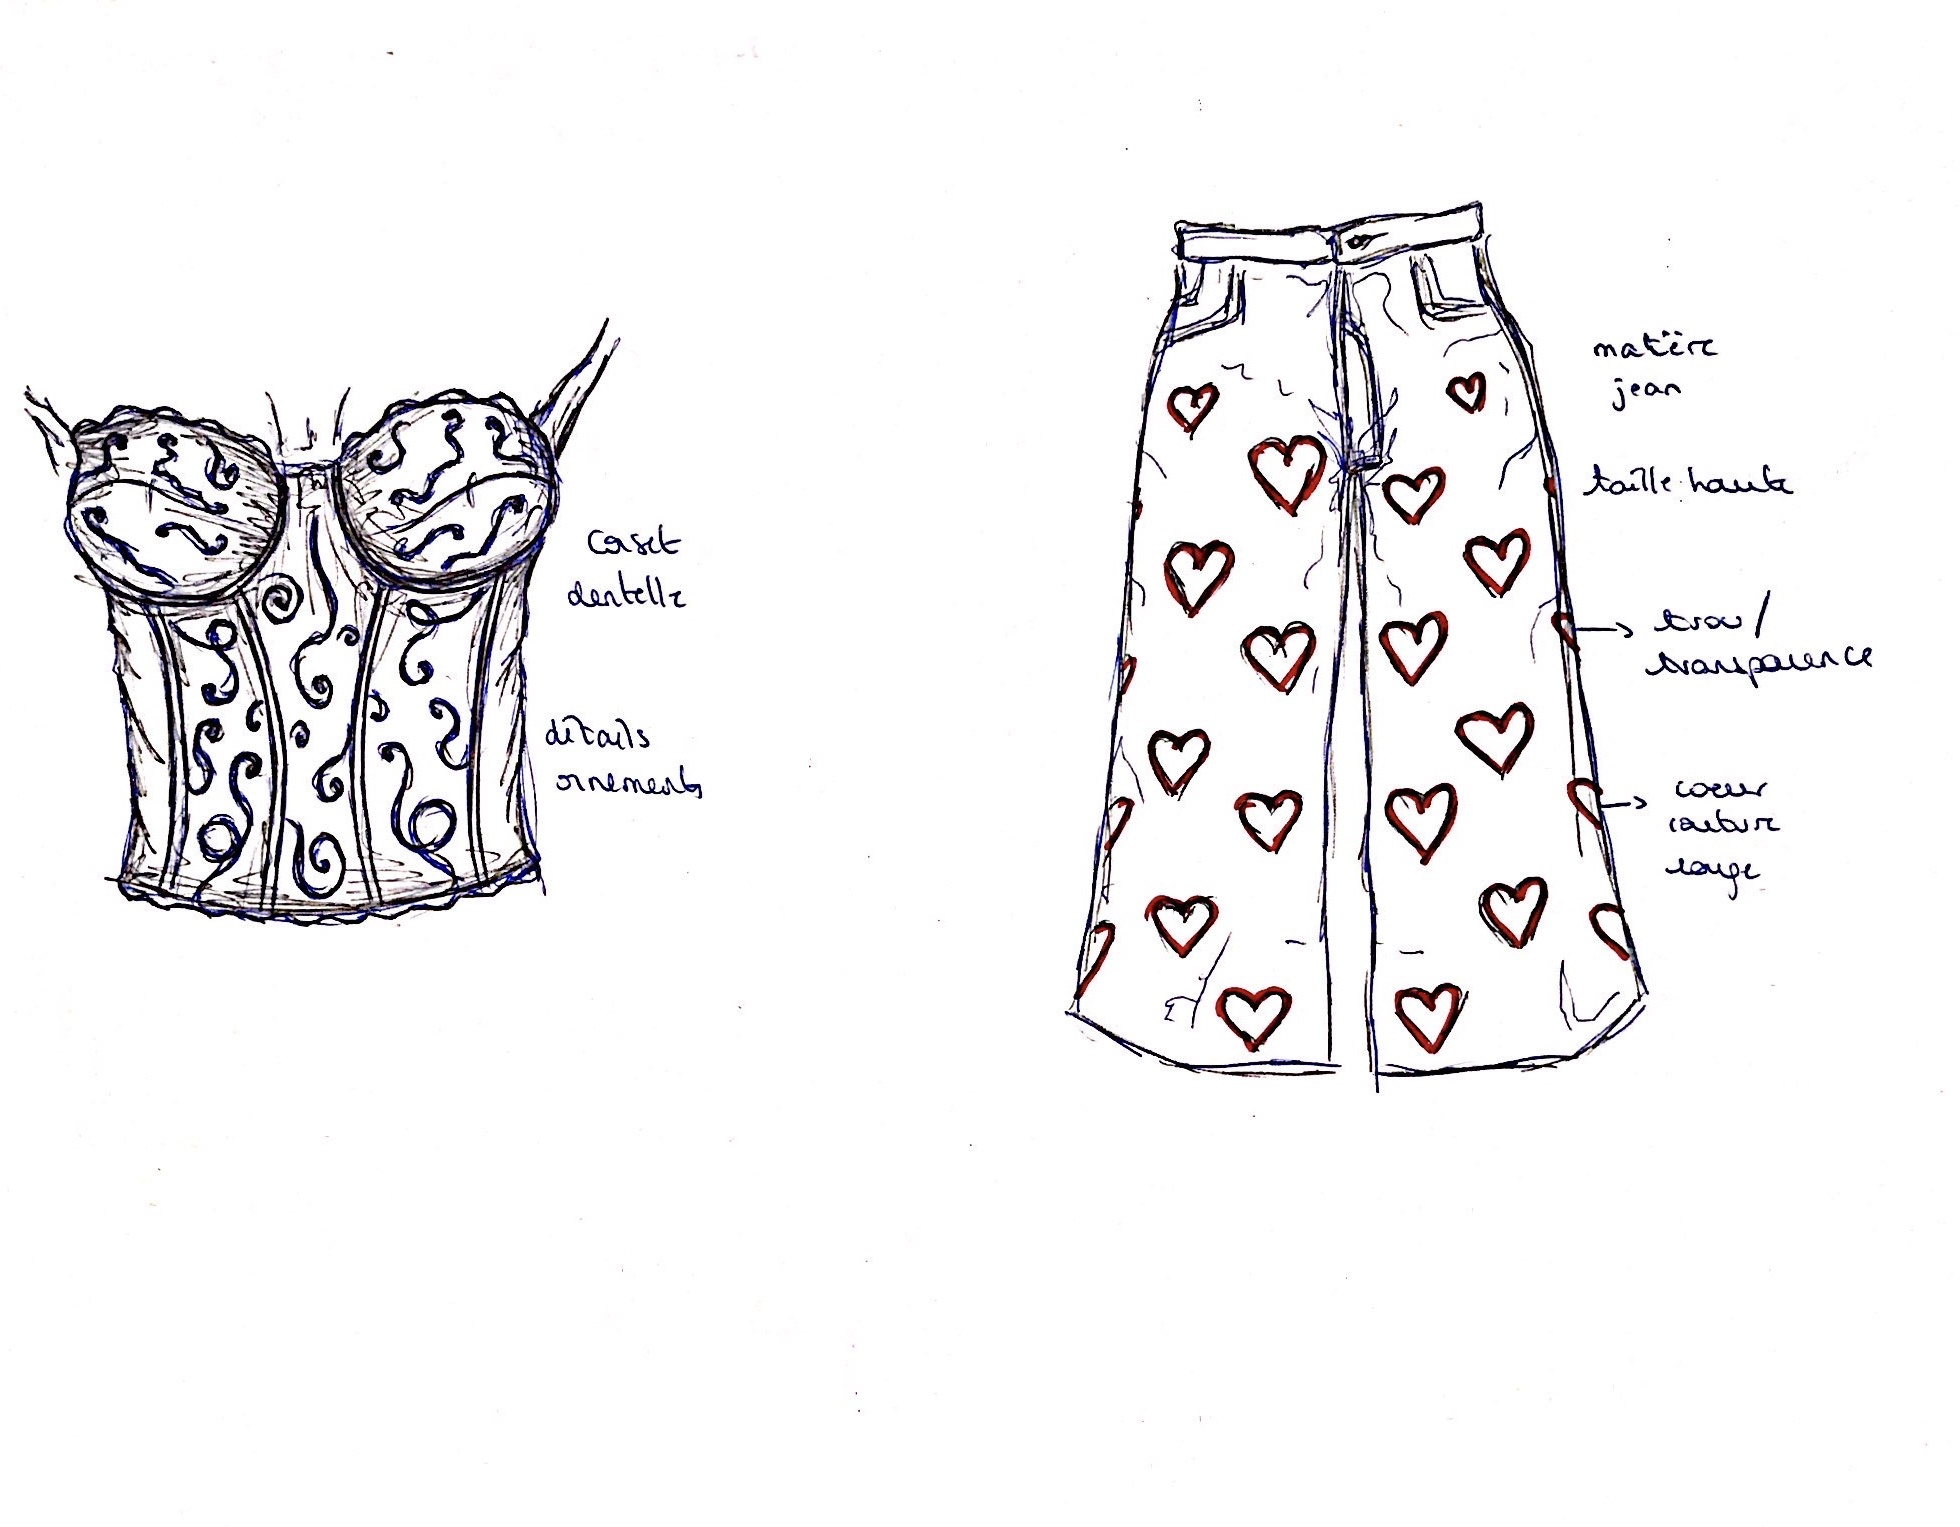 corset
dentelle
détails
ornements
matière
jean
taille haute
trou /
transparence
coeur
couture
rouge